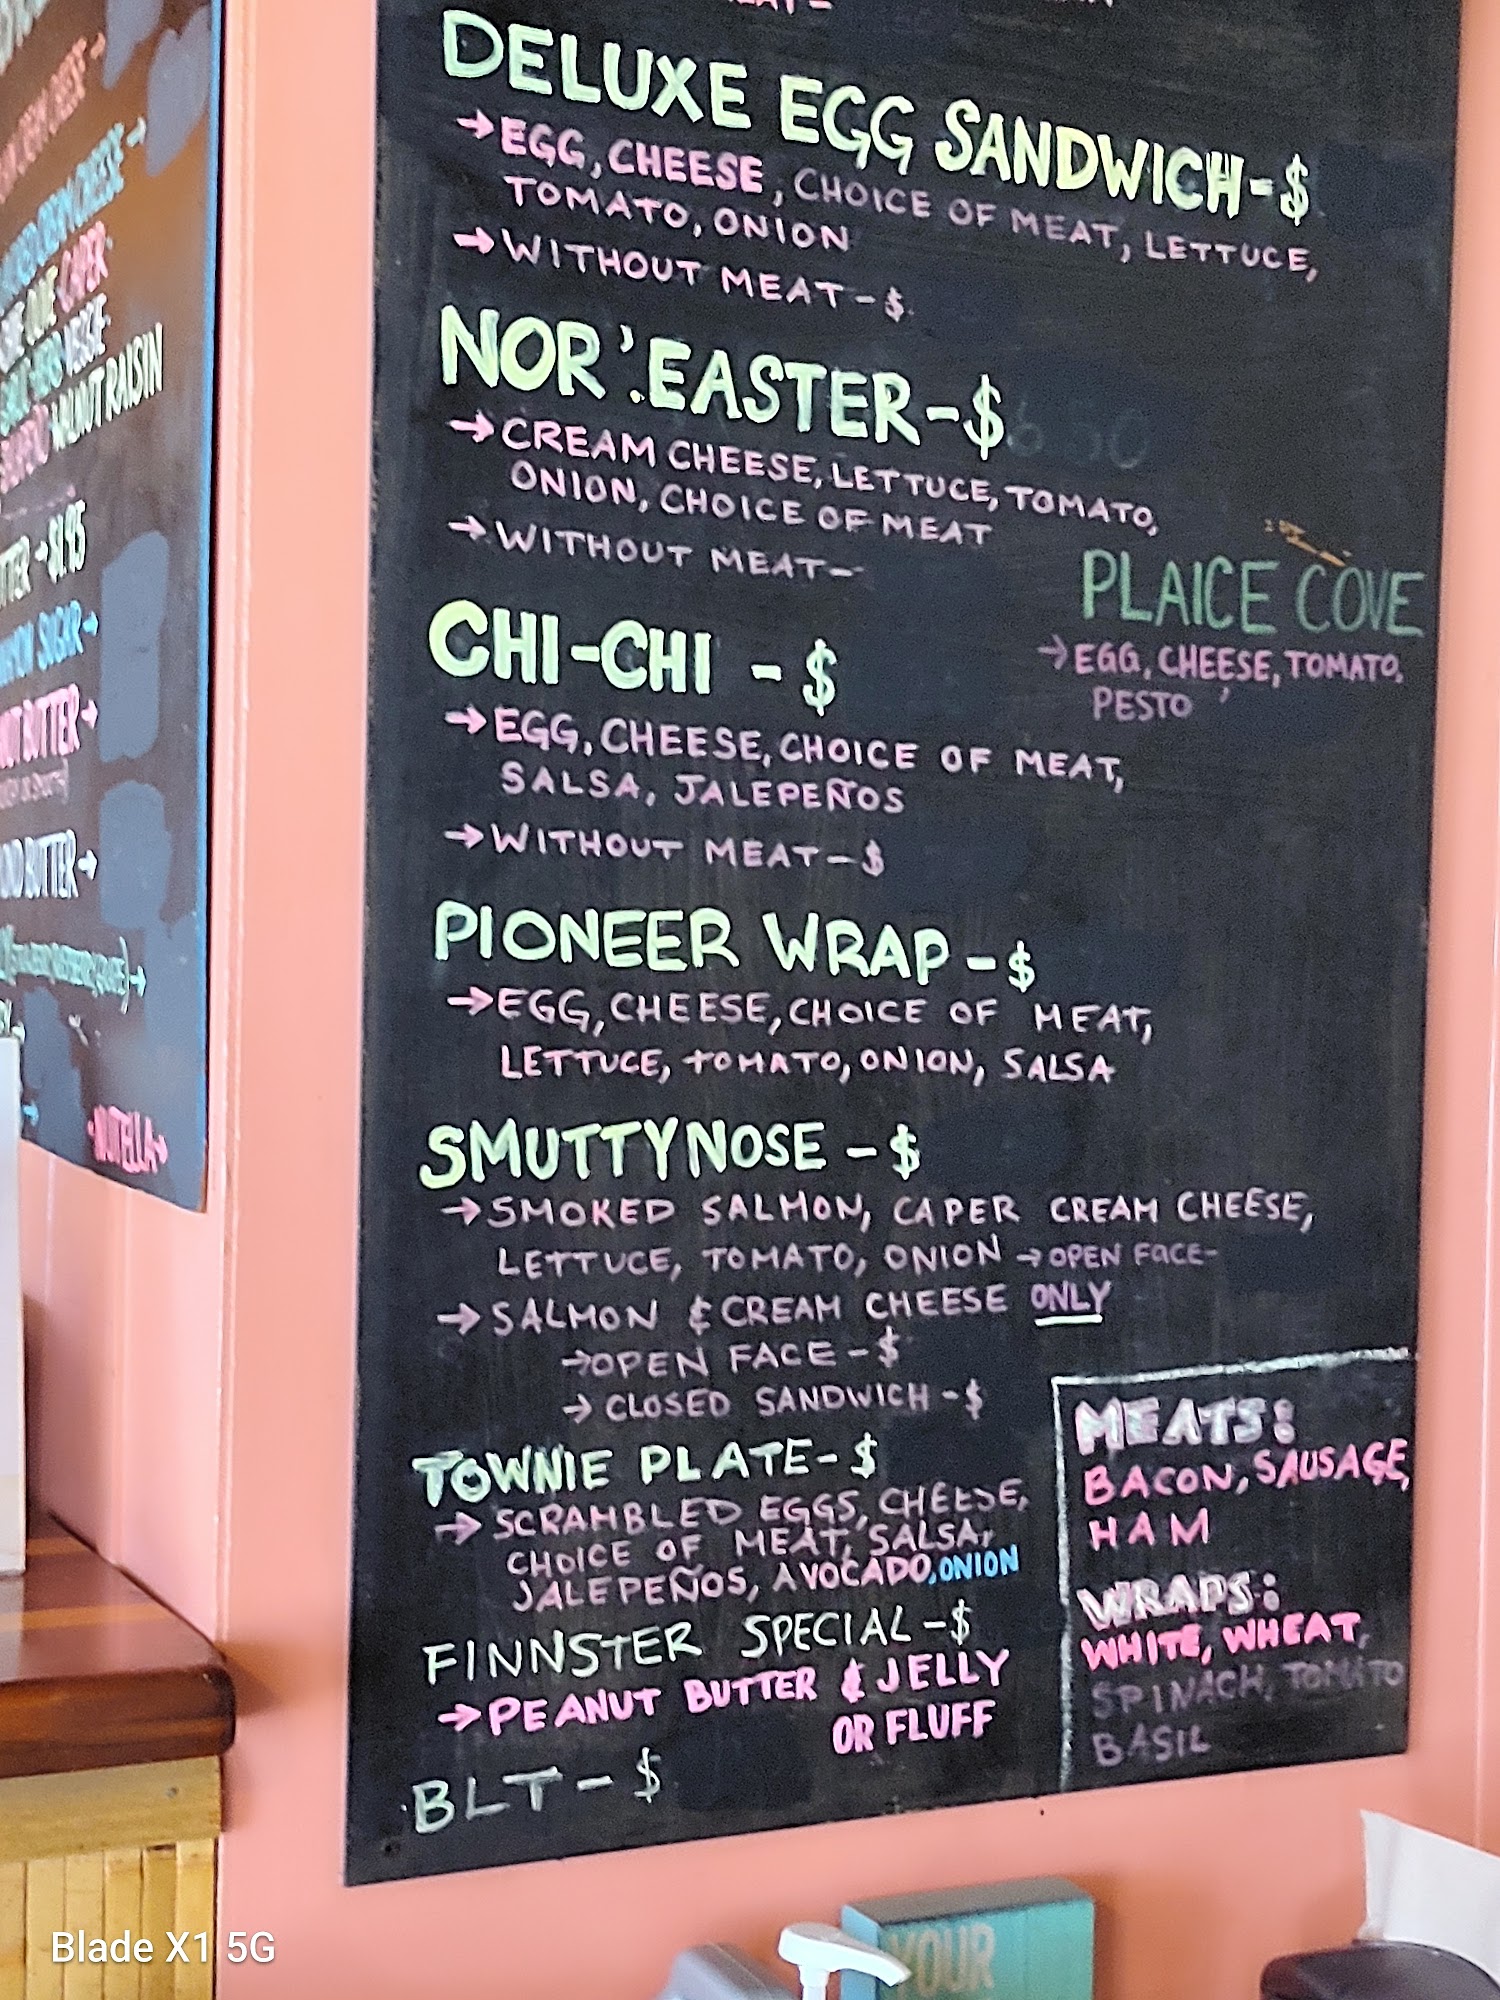 DELUXE EGG SANDWICH-$
→EGG, CHEESE, CHOICE OF MEAT, LETTUCE,
TOMATO, ONION
→WITHOUT MEAT-$
NOR'EASTER-$
→CREAM CHEESE, LETTUCE, TOMATO,
ONION, CHOICE OF MEAT
→WITHOUT MEAT-
PLAICE COVE
→EGG, CHEESE, TOMATO,
PESTO
CHI-CHI -$
→EGG, CHEESE, CHOICE OF MEAT,
SALSA, JALEPEÑOS
→WITHOUT MEAT-$
PIONEER WRAP-$
→EGG, CHEESE, CHOICE OF MEAT,
LETTUCE, TOMATO, ONION, SALSA
SMUTTYNOSE -$
→SMOKED SALMON, CAPER CREAM CHEESE,
LETTUCE, TOMATO, ONION →OPEN FACE-
→SALMON & CREAM CHEESE ONLY
→OPEN FACE-$
→CLOSED SANDWICH-$
TOWNIE PLATE-$
→SCRAMBLED EGGS, CHEESE,
CHOICE OF MEAT, SALSA,
JALEPEÑOS, AVOCADO, ONION
FINNSTER SPECIAL-$
→PEANUT BUTTER & JELLY
OR FLUFF
BLT-$
MEATS:
BACON, SAUSAGE,
HAM
WRAPS:
WHITE, WHEAT,
SPINACH, TOMATO
BASIL
CHEESE→
CAPER
VEGGIE
WALNUT RAISIN
→$1.95
SUGAR→
BUTTER→
BUTTER→
·NUTELLA→
YOUR
Blade X1 5G